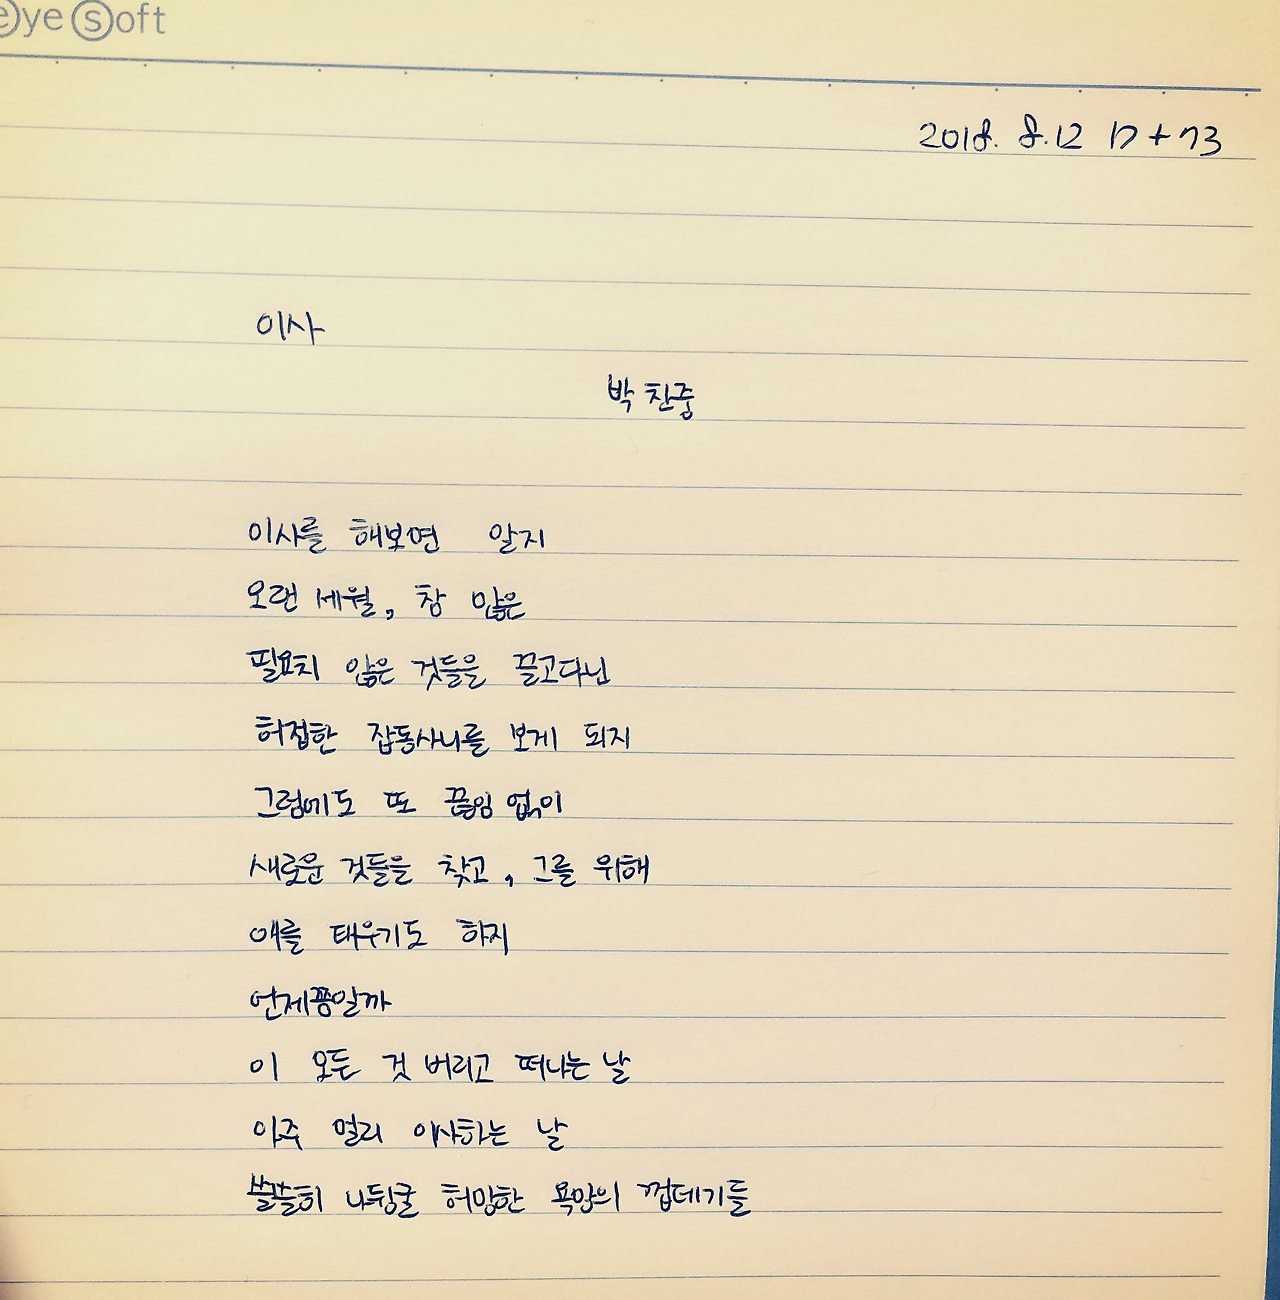 eyesoft
2018. 8.12 17+73
이사
박찬중
이사를 해보면 알지
오랜 세월, 참 많은
필요치 않은 것들을 끌고다닌
허접한 잡동사니를 보게 되지
그럼에도 또 끊임 없이
새로운 것들을 찾고, 그를 위해
애를 태우기도 하지
언제쯤일까
이 모든 것 버리고 떠나는 날
아주 멀리 이사하는 날
쓸쓸히 나뒹굴 허망한 욕망의 껍데기들